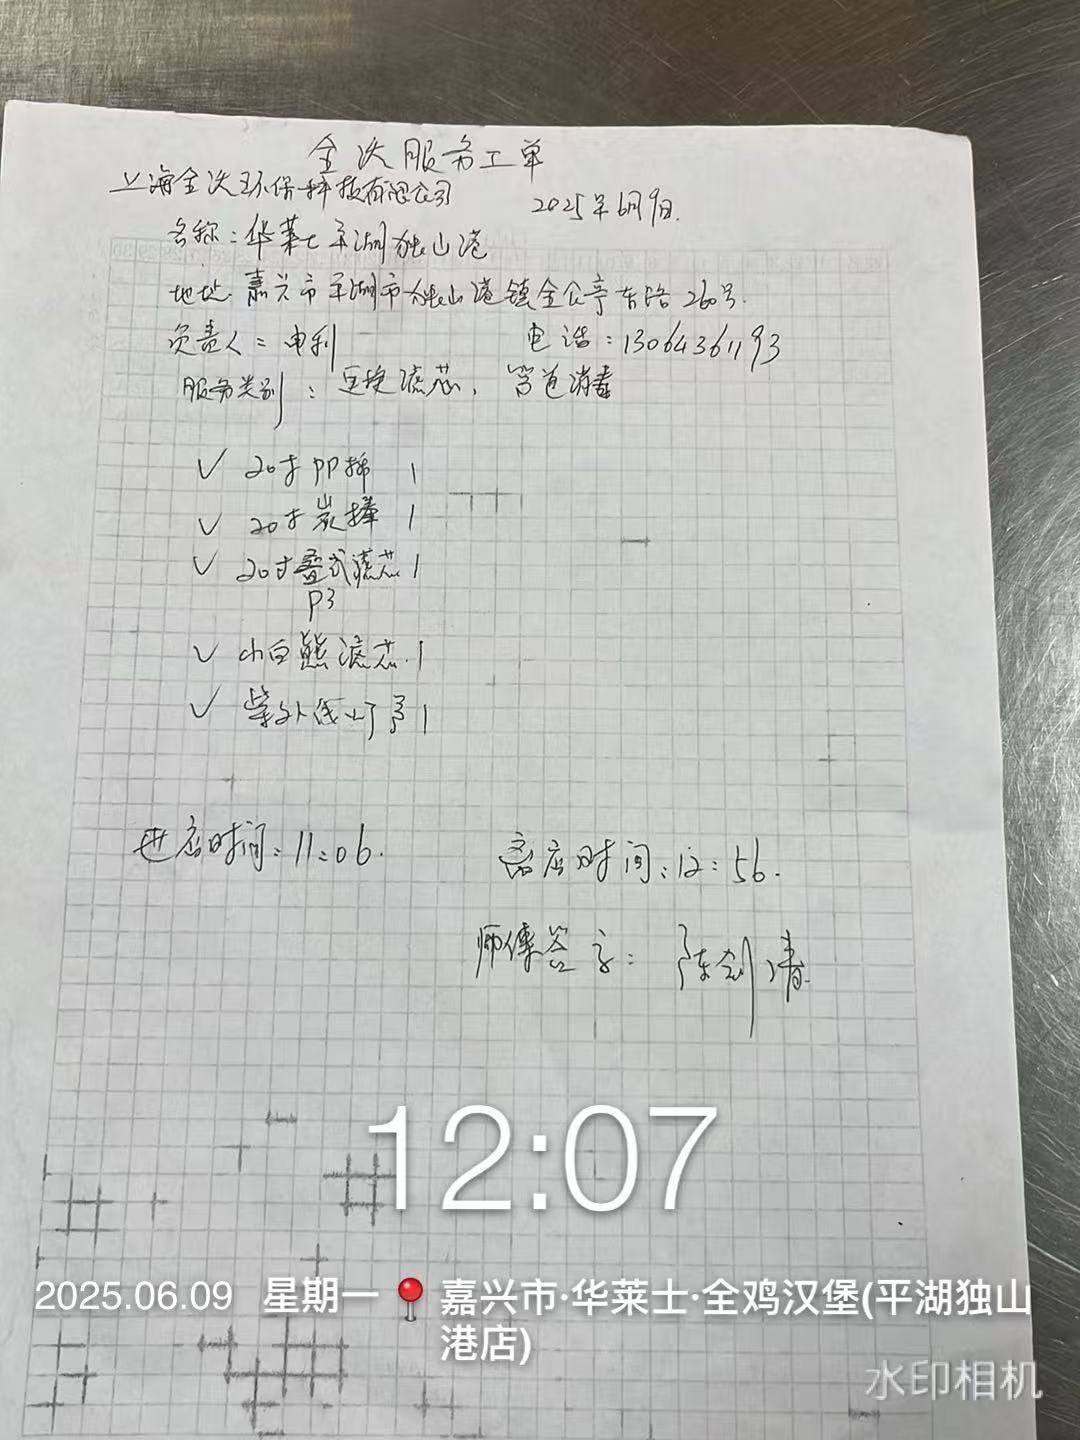 全沃服务工单
上海全沃环保科技有限公司
2025年6月9日.
名称：华莱士平湖独山港
地址：嘉兴市平湖市独山港镇全公亭东路260号.
负责人：申利
电话：13064361193
服务类别：更换滤芯，管道消毒
✓ 20寸PP棉 1
✓ 20寸炭棒 1
✓ 20寸叠式滤芯 1
P3
✓ 小白熊滤芯.1
✓ 紫外线灯 1
进店时间：11:06.
离店时间：12:56.
师傅签字：陈剑清.
12:07
2025.06.09 星期一 嘉兴市·华莱士·全鸡汉堡(平湖独山
港店)
水印相机